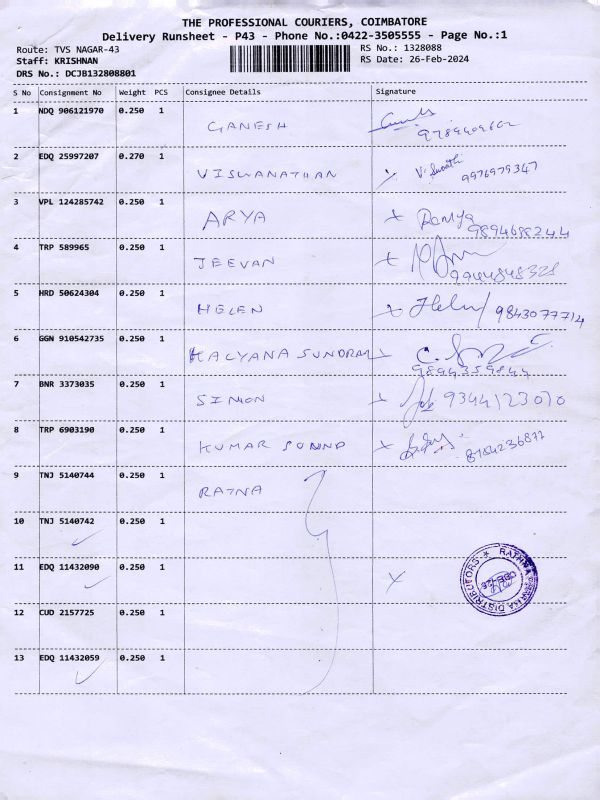 THE PROFESSIONAL COURIERS, COIMBATORE
Delivery Runsheet - P43 - Phone No.:0422-3505555 - Page No.:1
Route: TVS NAGAR-43 RS No.: 1328088
Staff: KRISHNAN RS Date: 26-Feb-2024
DRS No.: DCJB132808801
S No Consignment No Weight PCS Consignee Details Signature
1 NDQ 906121970 0.250 1 GANESH
2 EDQ 25997207 0.270 1 VISWANATHAN 9976979347
3 VPL 124285742 0.250 1 ARYA Ramya
9894688244
4 TRP 589965 0.250 1 JEEVAN
9944848328
5 HRD 50624304 0.250 1 HELEN Helen 9843077714
6 GGN 910542735 0.250 1 KALYANA SUNDRAM
9894359844
7 BNR 3373035 0.250 1 SIMON 9344123010
8 TRP 6903190 0.250 1 KUMAR
9 TNJ 5140744 0.250 1 RATNA
10 TNJ 5140742 0.250 1
11 EDQ 11432090 0.250 1
RATHNA DISTRIBUTORS
12 CUD 2157725 0.250 1
13 EDQ 11432059 0.250 1